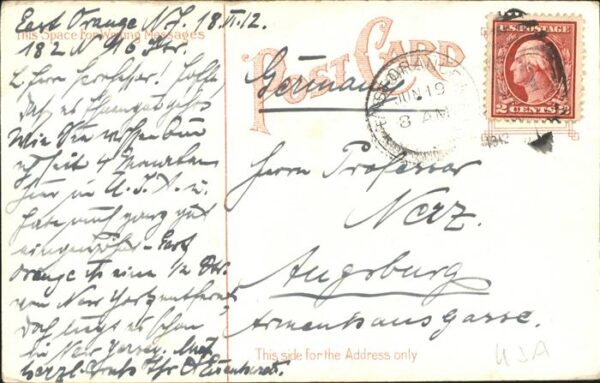 East Orange N.J. 18.VI.12.
This Space For Writing Messages
182 N 16 Str.
L. Herr Professor! Hoffe,
daß es Ihnen gut geht.
Wie Sie wissen bin
ich seit
hier in U.S.A. u.
habe mich ganz gut
East
Orange ist eine 1/2 Std.
von New York entfernt,
doch liegt es schon
in New Jersey.
herzl. Gruß Ihr
POST CARD
Germany
ORANGE
JUN 19
8 AM
1912
U.S. POSTAGE
2 CENTS 2
Herrn Professor
Nerz.
Augsburg
Armenhausgasse.
This side for the Address only
USA